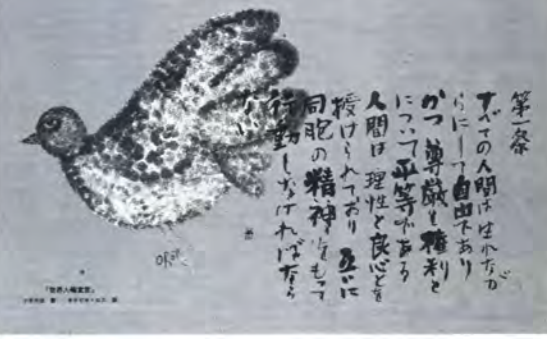 第一条
すべての人間は生れなが
らにして自由であり
かつ 尊厳と権利と
について平等である
人間は理性と良心とを
授けられており 互いに
同胞の精神をもって
行動しなければなら
ない
「世界人権宣言」